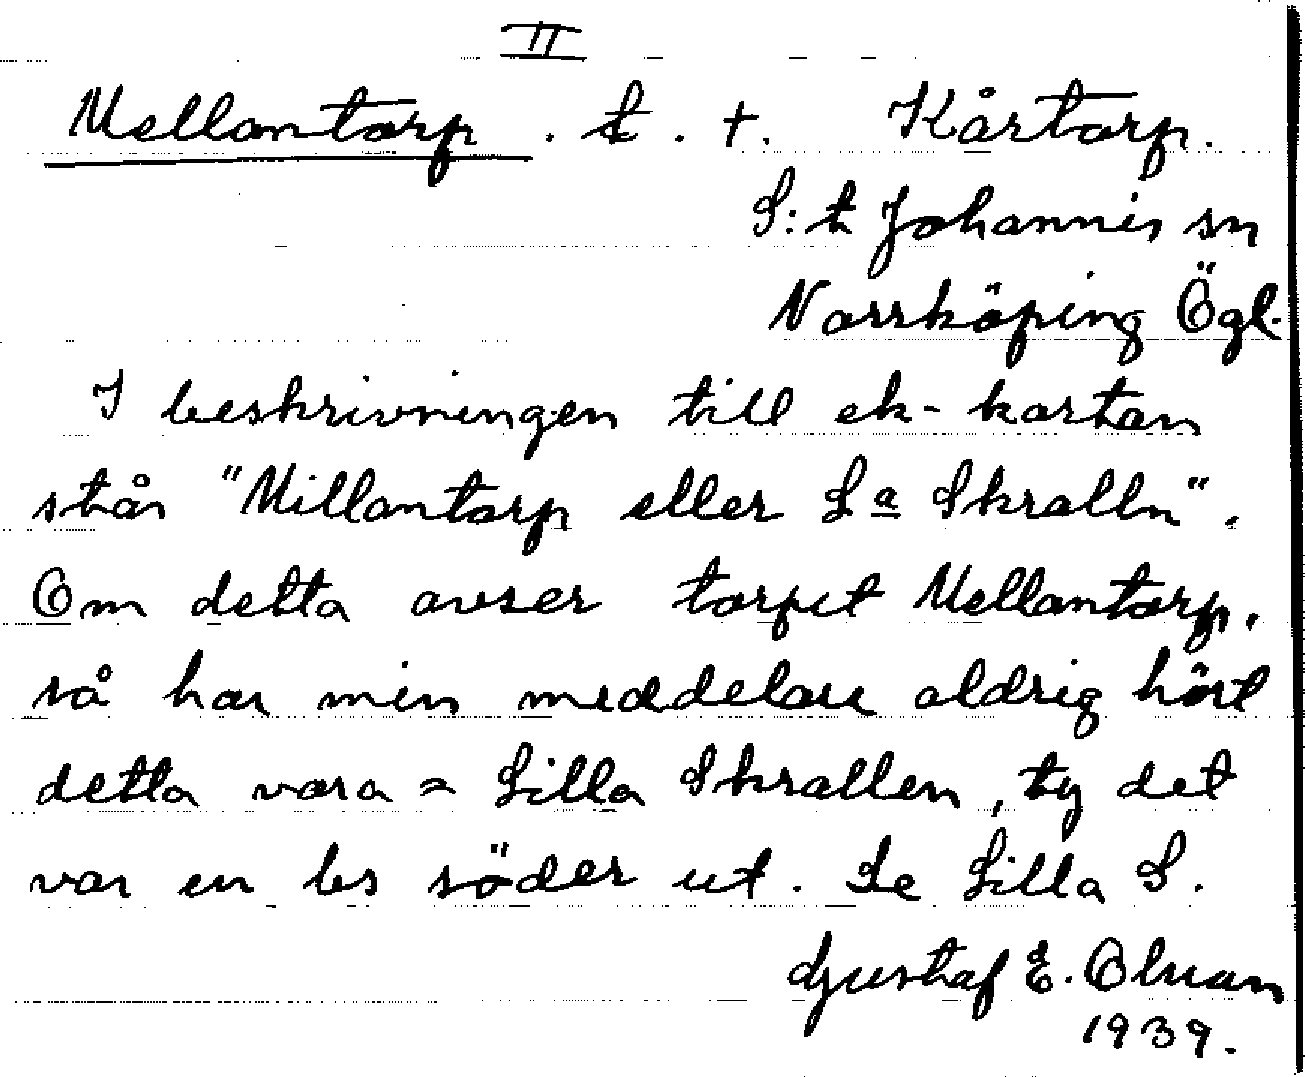 II
Mellantorp. t. +. Kårtorp.
S:t Johannis sn
Norrköping Ögl.
I beskrivningen till ek-kartan
står "Millantorp eller La Skralln".
Om detta avser torpet Mellantorp,
så har min meddelare aldrig hört
detta vara = Lilla Skrallen, ty det
var en bs söder ut. Se Lilla S.
Gustaf E. Olman
1939.